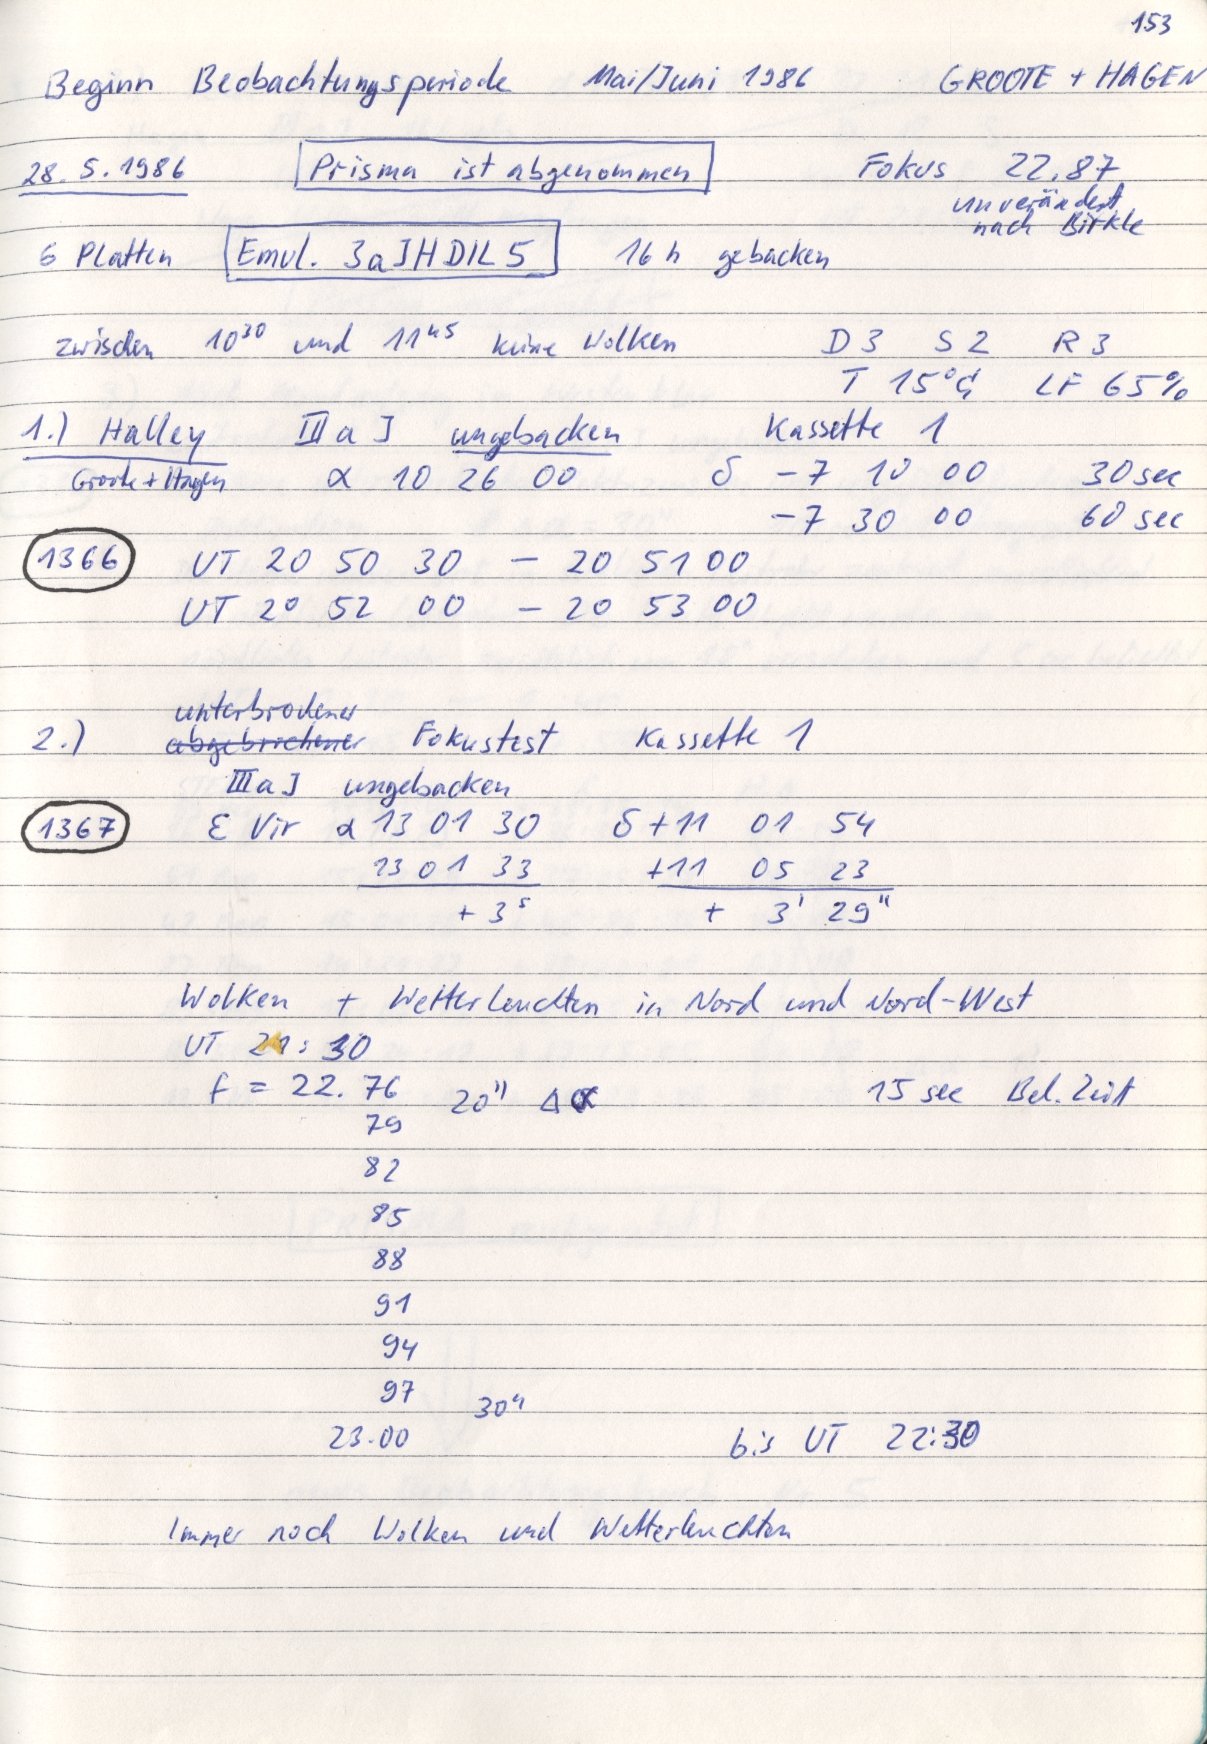 153
Beginn Beobachtungsperiode Mai/Juni 1986 GROOTE + HAGEN
28.5.1986 Prisma ist abgenommen Fokus 22.87
unverändert
nach Birkle
6 Platten Emul. 3aJH DIL 5 16 h gebacken
zwischen 10³⁰ und 11⁴⁵ keine Wolken D 3 S 2 R 3
T 15°C LF 65%
1.) Halley IIIaJ ungebacken Kassette 1
Groote + Hagen α 10 26 00 δ -7 10 00 30 sec
-7 30 00 60 sec
1366 UT 20 50 30 - 20 51 00
UT 20 52 00 - 20 53 00
unterbrochener
2.) abgebrichener Fokustest Kassette 1
IIIaJ ungebacken
1367 ε Vir α 13 01 30 δ +11 01 54
13 01 33 +11 05 23
+ 3ˢ + 3' 29"
Wolken + Wetterleuchten in Nord und Nord-West
UT 21:30
f = 22.76 20" Δα 15 sec Bel. Zeit
79
82
85
88
91
94
97 30"
23.00 bis UT 22:30
Immer noch Wolken und Wetterleuchten